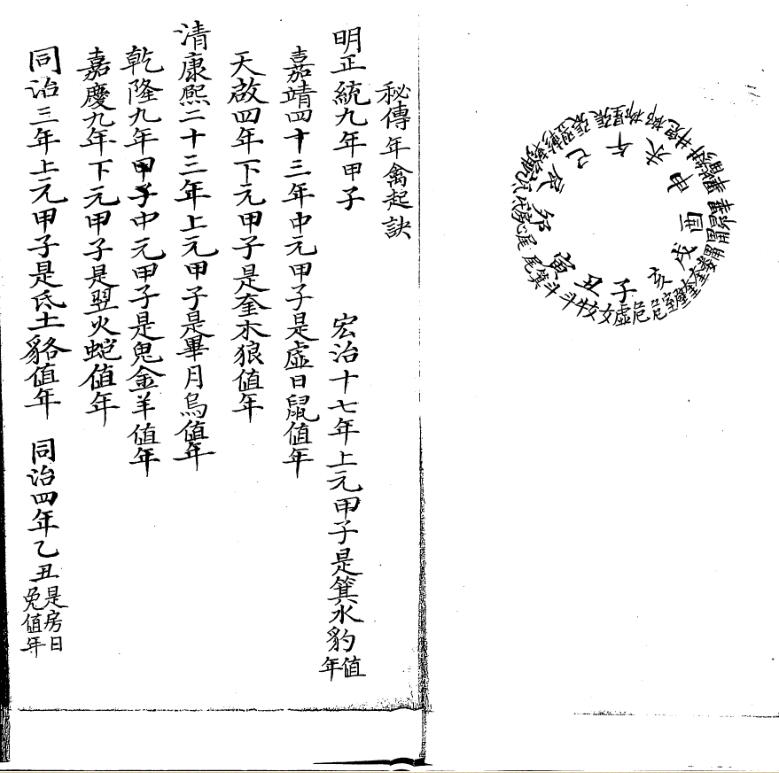 子丑寅卯辰巳午未申酉戌亥
尾箕斗斗牛女虛危危室壁奎
秘傳年禽起訣
明正統九年甲子 宏治十七年上元甲子是箕水豹值年
嘉靖四十三年中元甲子是虛日鼠值年
天啟四年下元甲子是奎木狼值年
清康熙二十三年上元甲子是畢月烏值年
乾隆九年甲子中元甲子是鬼金羊值年
嘉慶九年下元甲子是翌火蛇值年
同治三年上元甲子是氐土貉值年 同治四年乙丑是房日兔值年